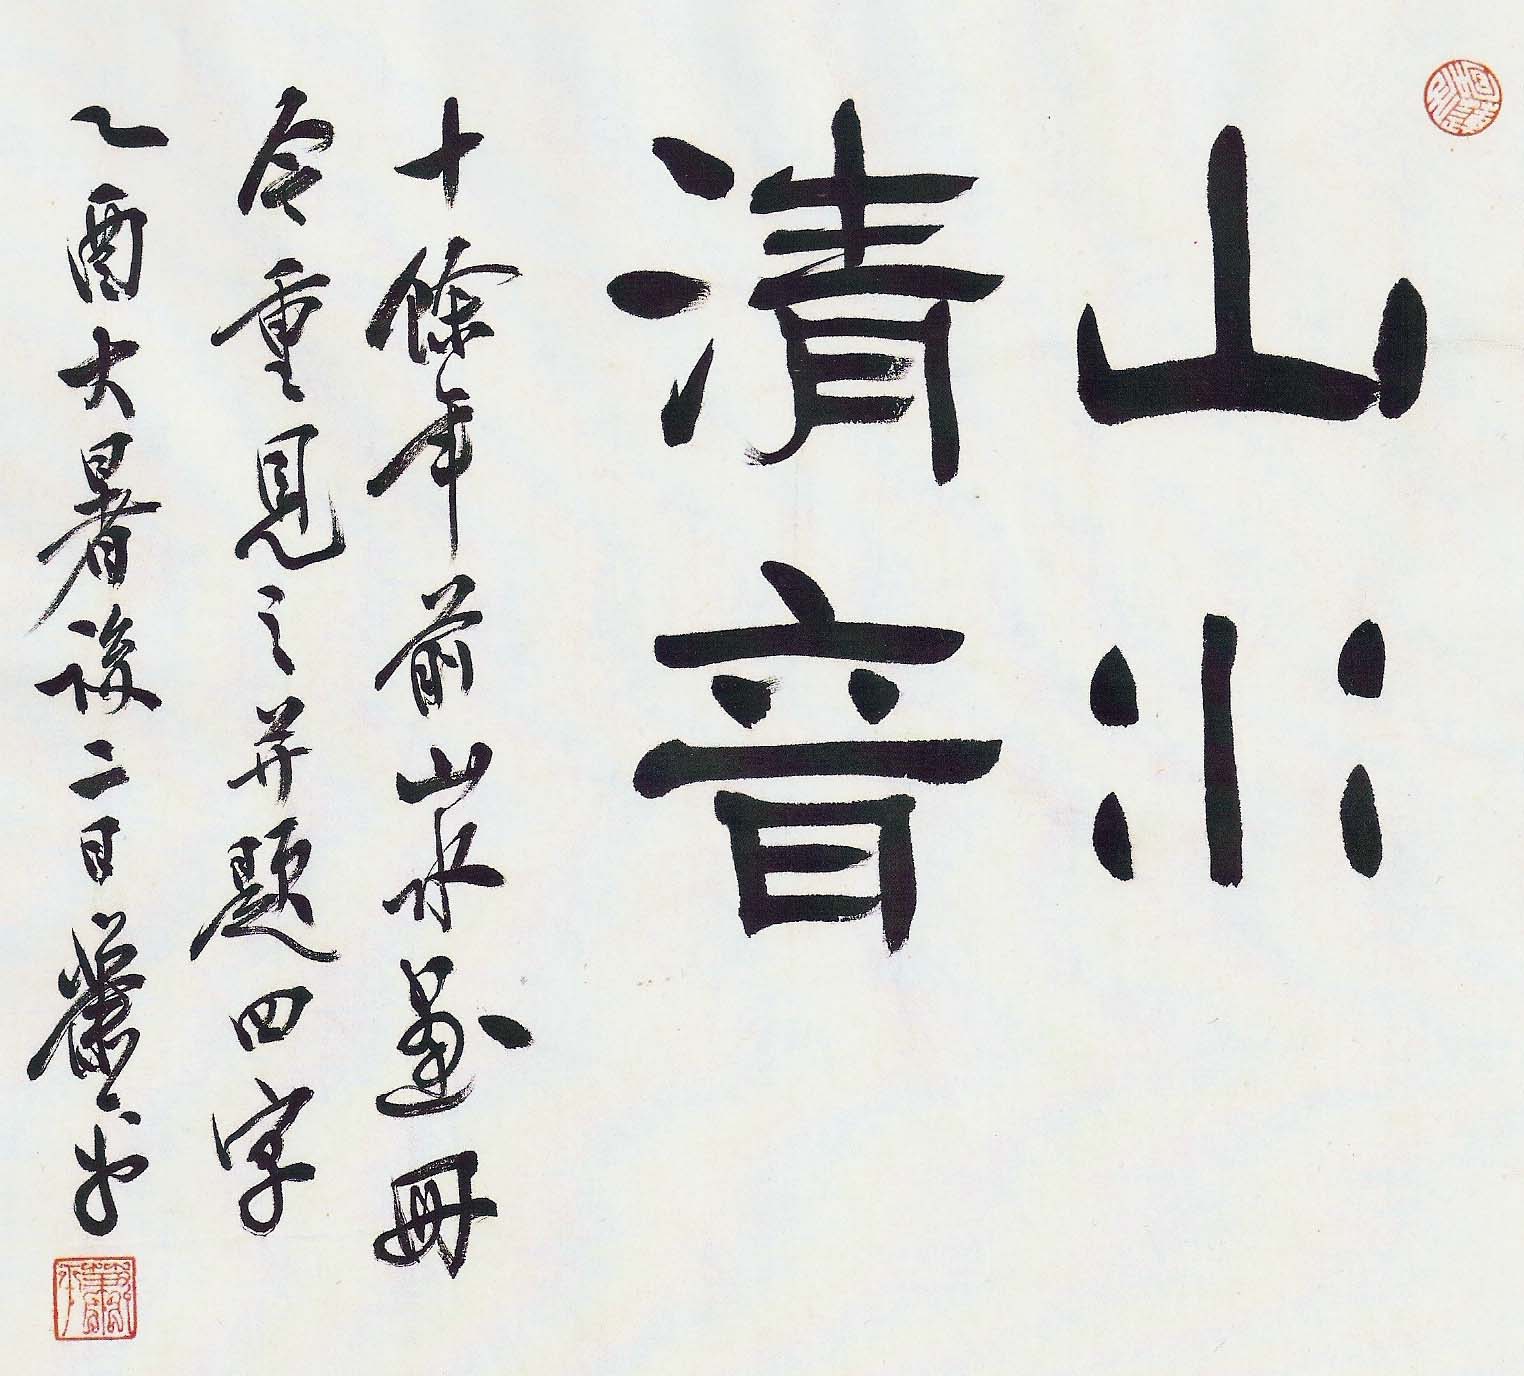 山水
清音
十餘年前山水畫冊
今重見之并題四字
乙酉大暑後二日蕭平
蕭平